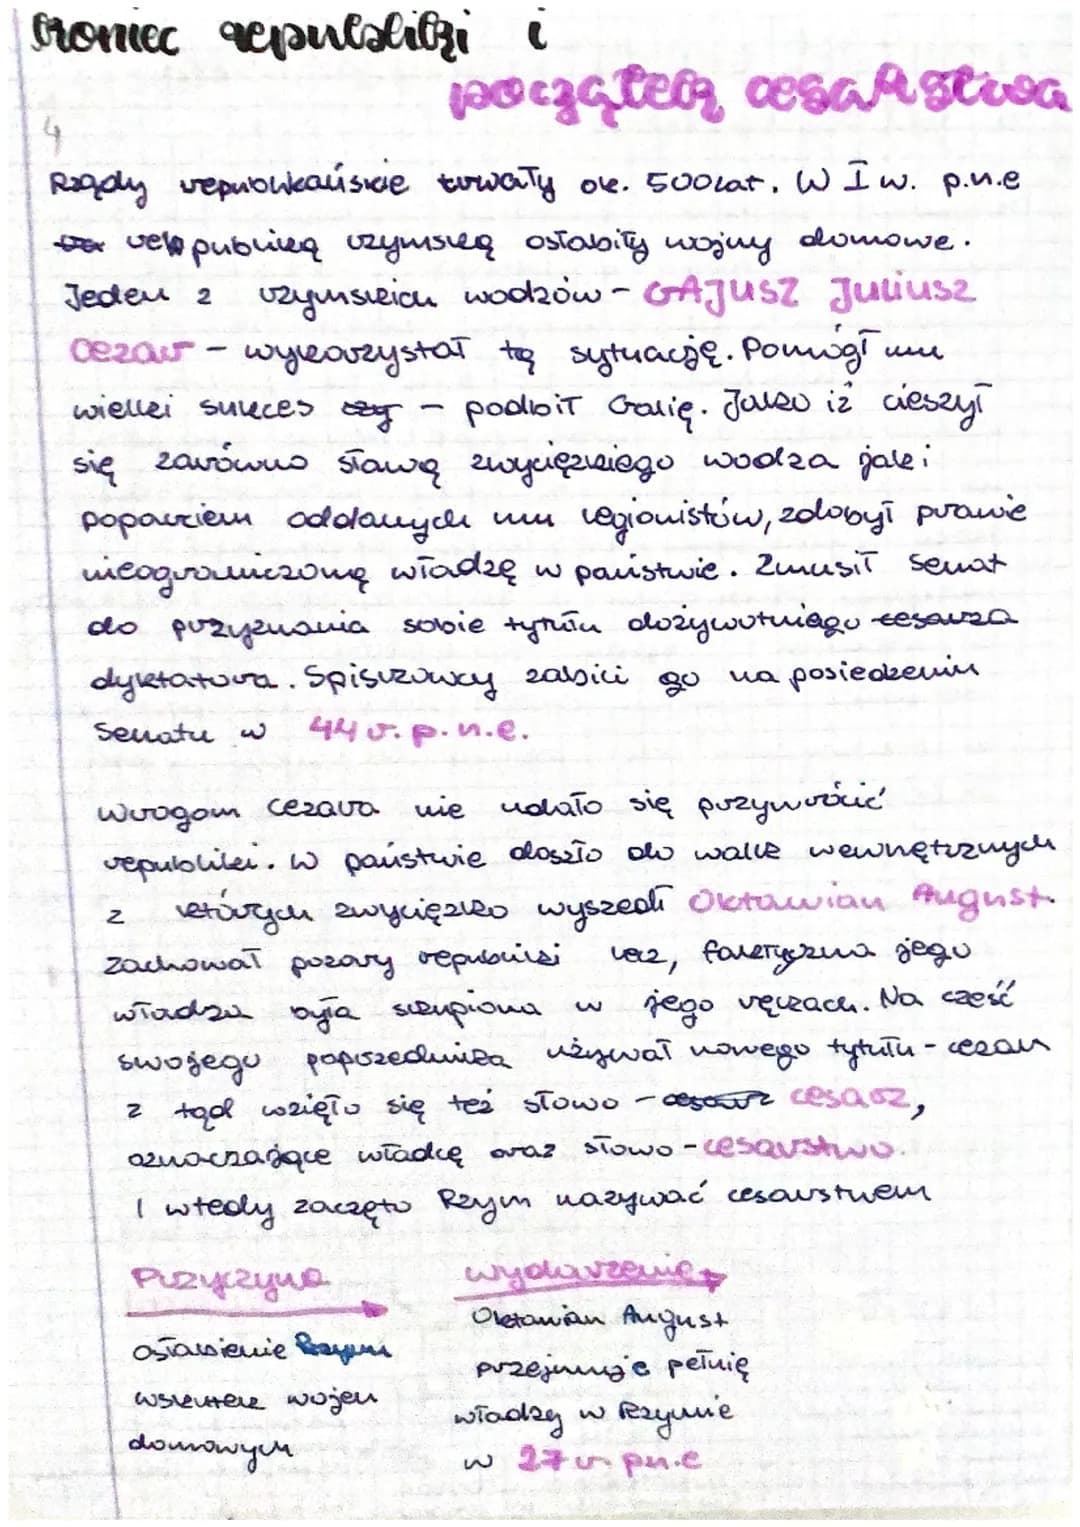 koniec republiki i
początek cesarstwa
4
Rządy republikańskie trwały ok. 500 lat. W I w. p.n.e
republiką rzymską osłabiły wojny domowe.
Jeden z rzymskich wodzów - GAJUSZ JULIUSZ
Cezar - wykorzystał tą sytuację. Pomógł mu
wielki sukces - podbił Galię. Jako iż cieszył
się zarówno sławą zwycięzkiego wodza jak i
poparciem oddanych mu legionistów, zdobył prawie
nieograniczoną władzę w państwie. Zmusił Senat
do przyznania sobie tytułu dożywotniego cesarza
dyktatora. Spiskowcy zabili go na posiedzeniu
Senatu w 44 r. p.n.e.
Wrogom Cezara nie udało się przywrócić
republiki. W państwie doszło do walk wewnętrznych
z których zwycięzko wyszedł Oktawian August.
Zachował pozory republiki lecz, faktyczna jego
władza była skupiona w jego rękach. Na cześć
swojego poprzednika używał nowego tytułu - cezar
z tąd wzięło się też słowo - cesarz cesarz,
oznaczające władcę oraz słowo - cesarstwo.
I wtedy zaczęto Rzym nazywać cesarstwem
Przyczyna wydarzenie
osłabienie Rzymu Oktawian August
wskutek wojen przejmuje pełnię
domowych władzy w Rzymie
w 27 r. p.n.e